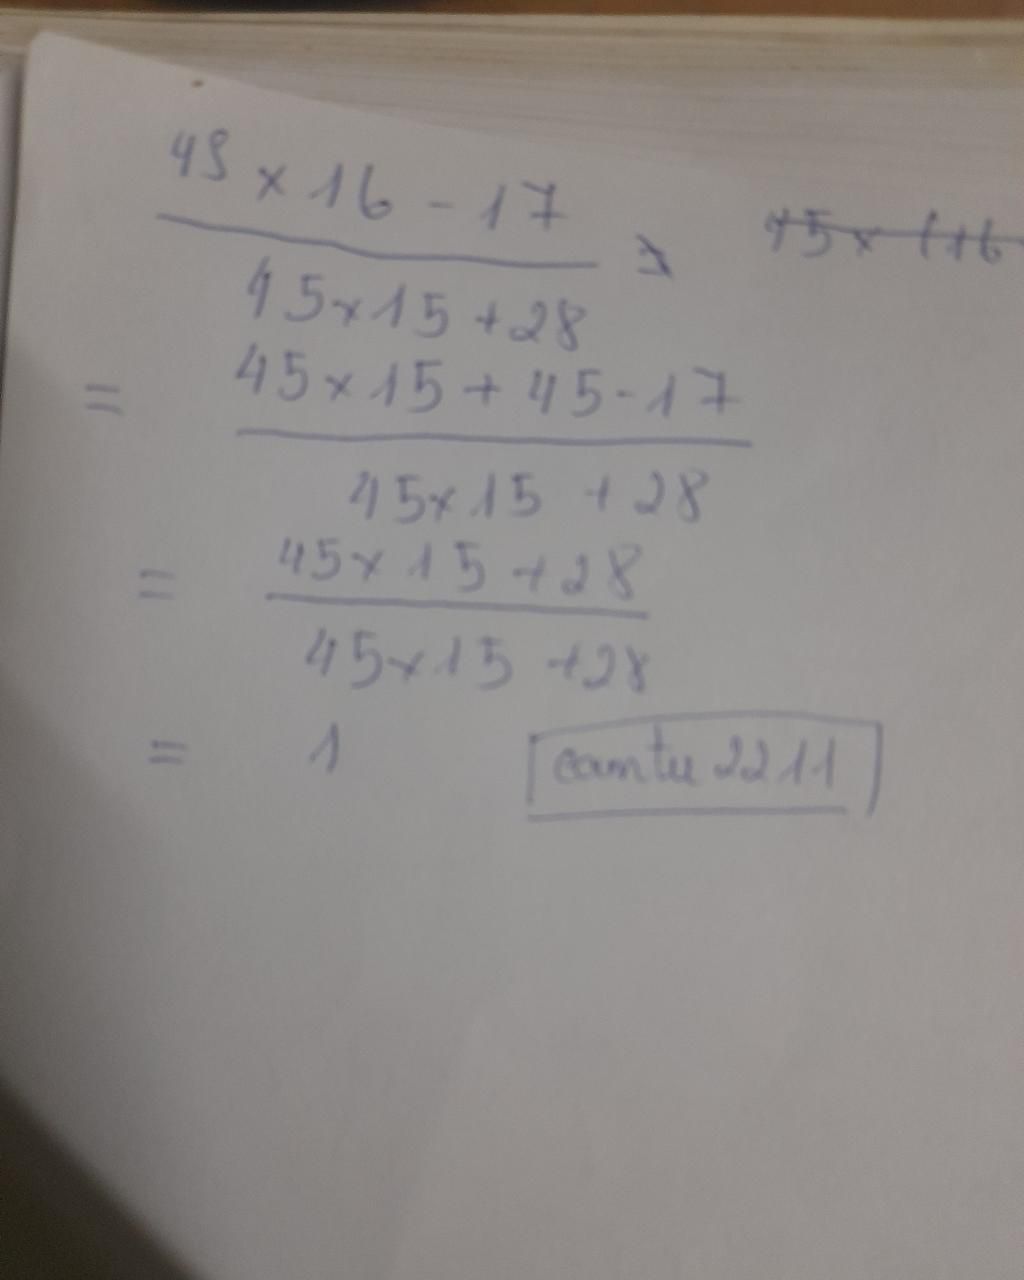 45 x 16 - 17
45 x 15 + 28
= 45 x 15 + 45 - 17
45 x 15 + 28
= 45 x 15 + 28
45 x 15 + 28
= 1
camtu2211